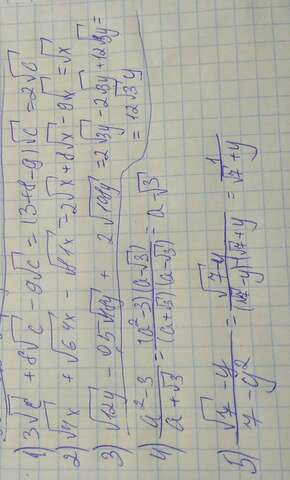 1) 3√c + 8√c - 9√c = (3+8-9)√c = 2√c
2) √4x + √64x - √81x = 2√x + 8√x - 9√x = √x
3) √12y - 0,5√48y + 2√108y = 2√3y - 2√3y + 12√3y =
= 12√3y
4) a² - 3 / a + √3 = (a² - 3)(a - √3) / (a + √3)(a - √3) = a - √3
5) √7 - y / 7 - y² = √7 - y / (√7 - y)(√7 + y = 1 / √7 + y